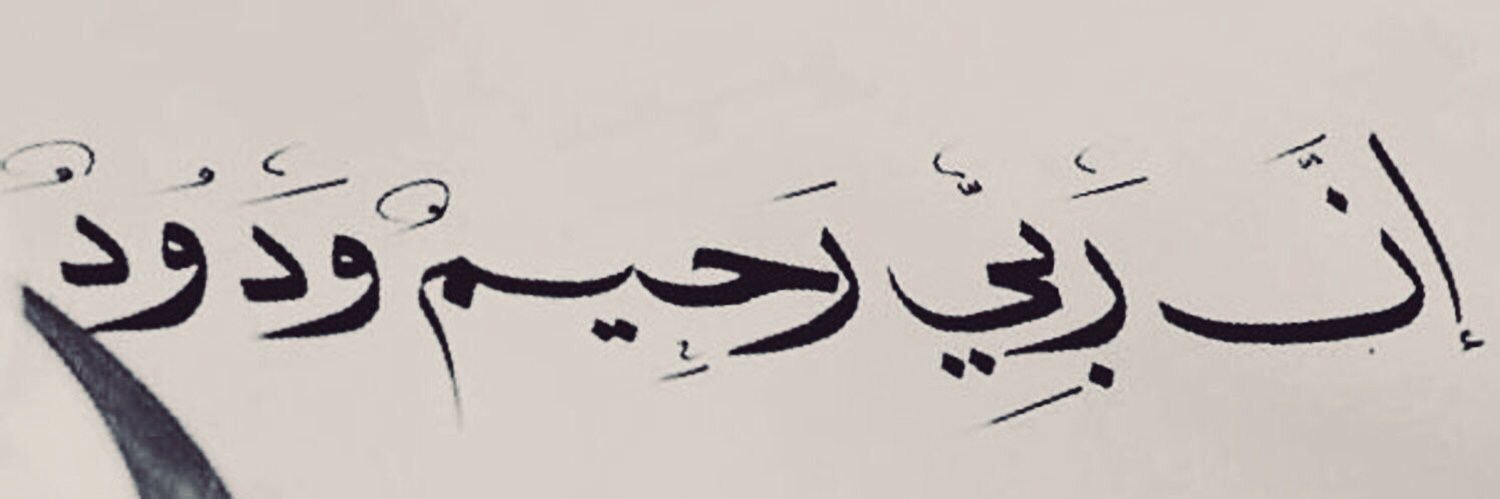 إِنَّ رَبِّيَ رَحِيمٌ وَدُودٌ